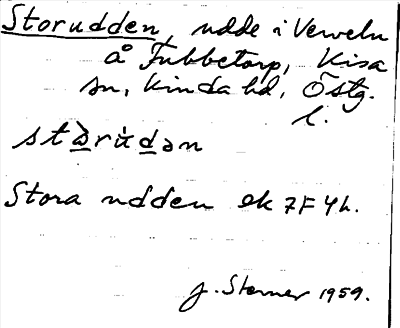 Storudden, udde i Verveln
å Fubbetorp, Kisa
sn, Kinda hd, Östg.
l.
stɷ̀rɯ̀dən
Stora udden ek 7F 4h.
J. Sterner 1959.